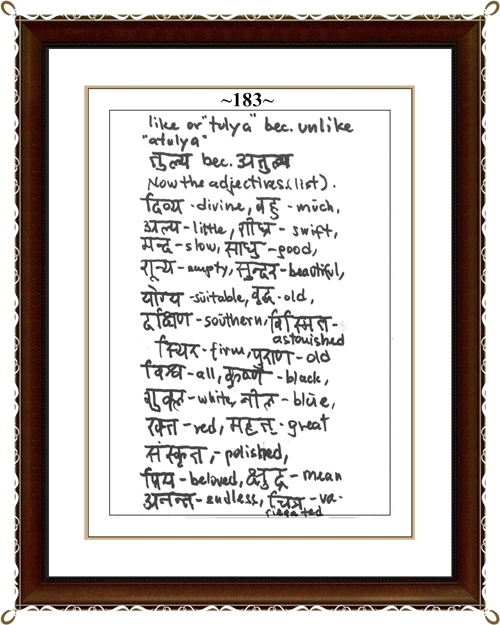 ~183~
like or "tulya" bec. unlike
"atulya"
तुल्य bec. अतुल्य
Now the adjectives (list).
दिव्य - divine, बहु - much,
अल्प - little, शीघ्र - swift,
मन्द - slow, साधु - good,
शून्य - empty, सुन्दर - beautiful,
योग्य - suitable, वृद्ध - old,
दक्षिण - southern, विस्मित -
astonished
स्थिर - firm, पुराण - old
विश्व - all, कृष्ण - black,
शुक्ल - white, नील - blue,
रक्त - red, महत् - great
संस्कृत, - polished,
प्रिय - beloved, क्षुद्र - mean
अनन्त - endless, चित्र - va-
riegated